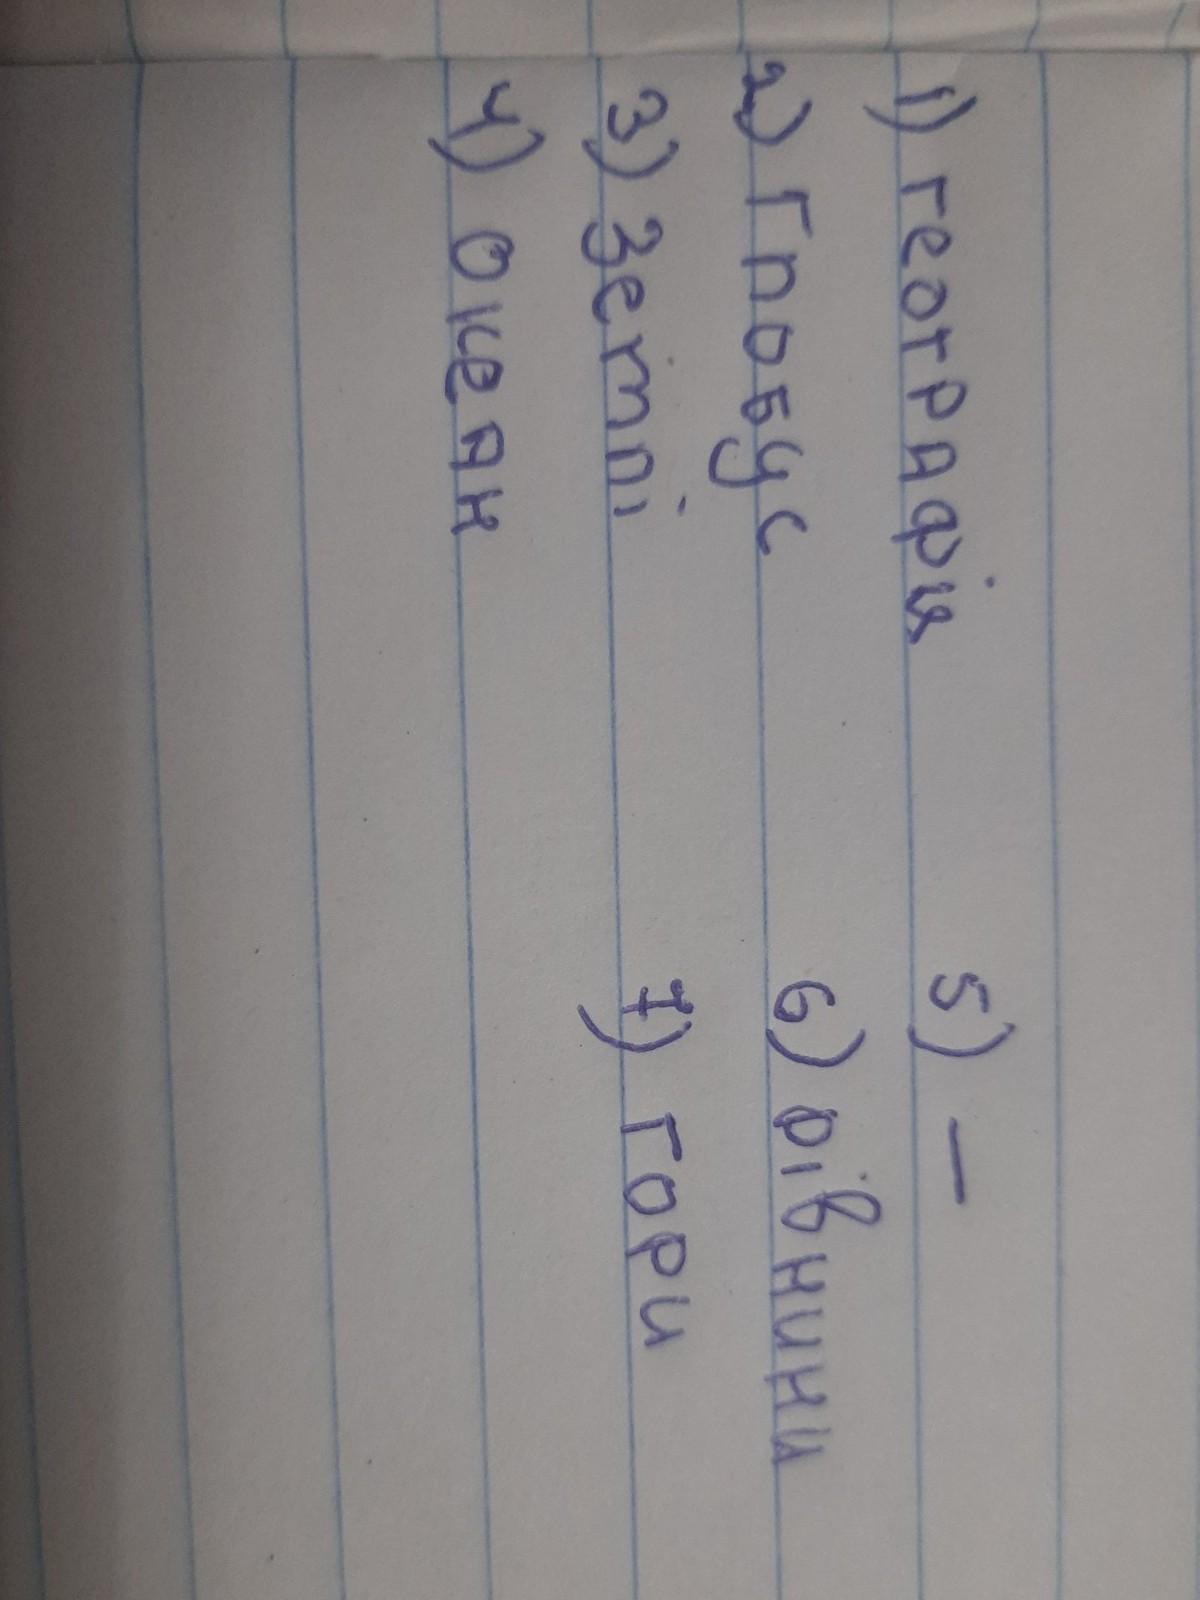 1) географія
2) Глобус
3) Землі
4) океан
5) —
6) рівнини
7) гори